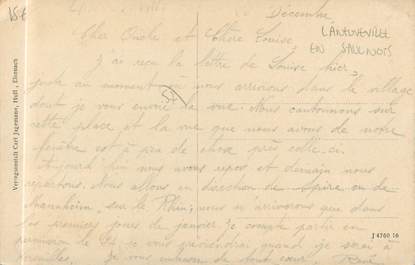 Décembre
Cher Oncle et Chère Louise
LANEUVEVILLE
EN SAULNOIS
J'ai reçu la lettre de Louise hier,
juste au moment où nous arrivions dans le village
dont je vous envoie la vue. Nous cantonnons sur
cette place et la vue que nous avons de notre
fenêtre est à peu de chose près celle-ci.
Aujourd'hui nous avons repos et demain nous
repartons. Nous allons en direction de Spire en de
Mannheim, sur le Rhin; nous n'arriverons que dans
les premiers jours de janvier. Je compte partir en
permission de je vous préviendrai quand je serai à
Je vous embrasse de tout cœur. René
Verlagsanstalt Carl Jagemann, Hofl., Eisenach
J 4760 16